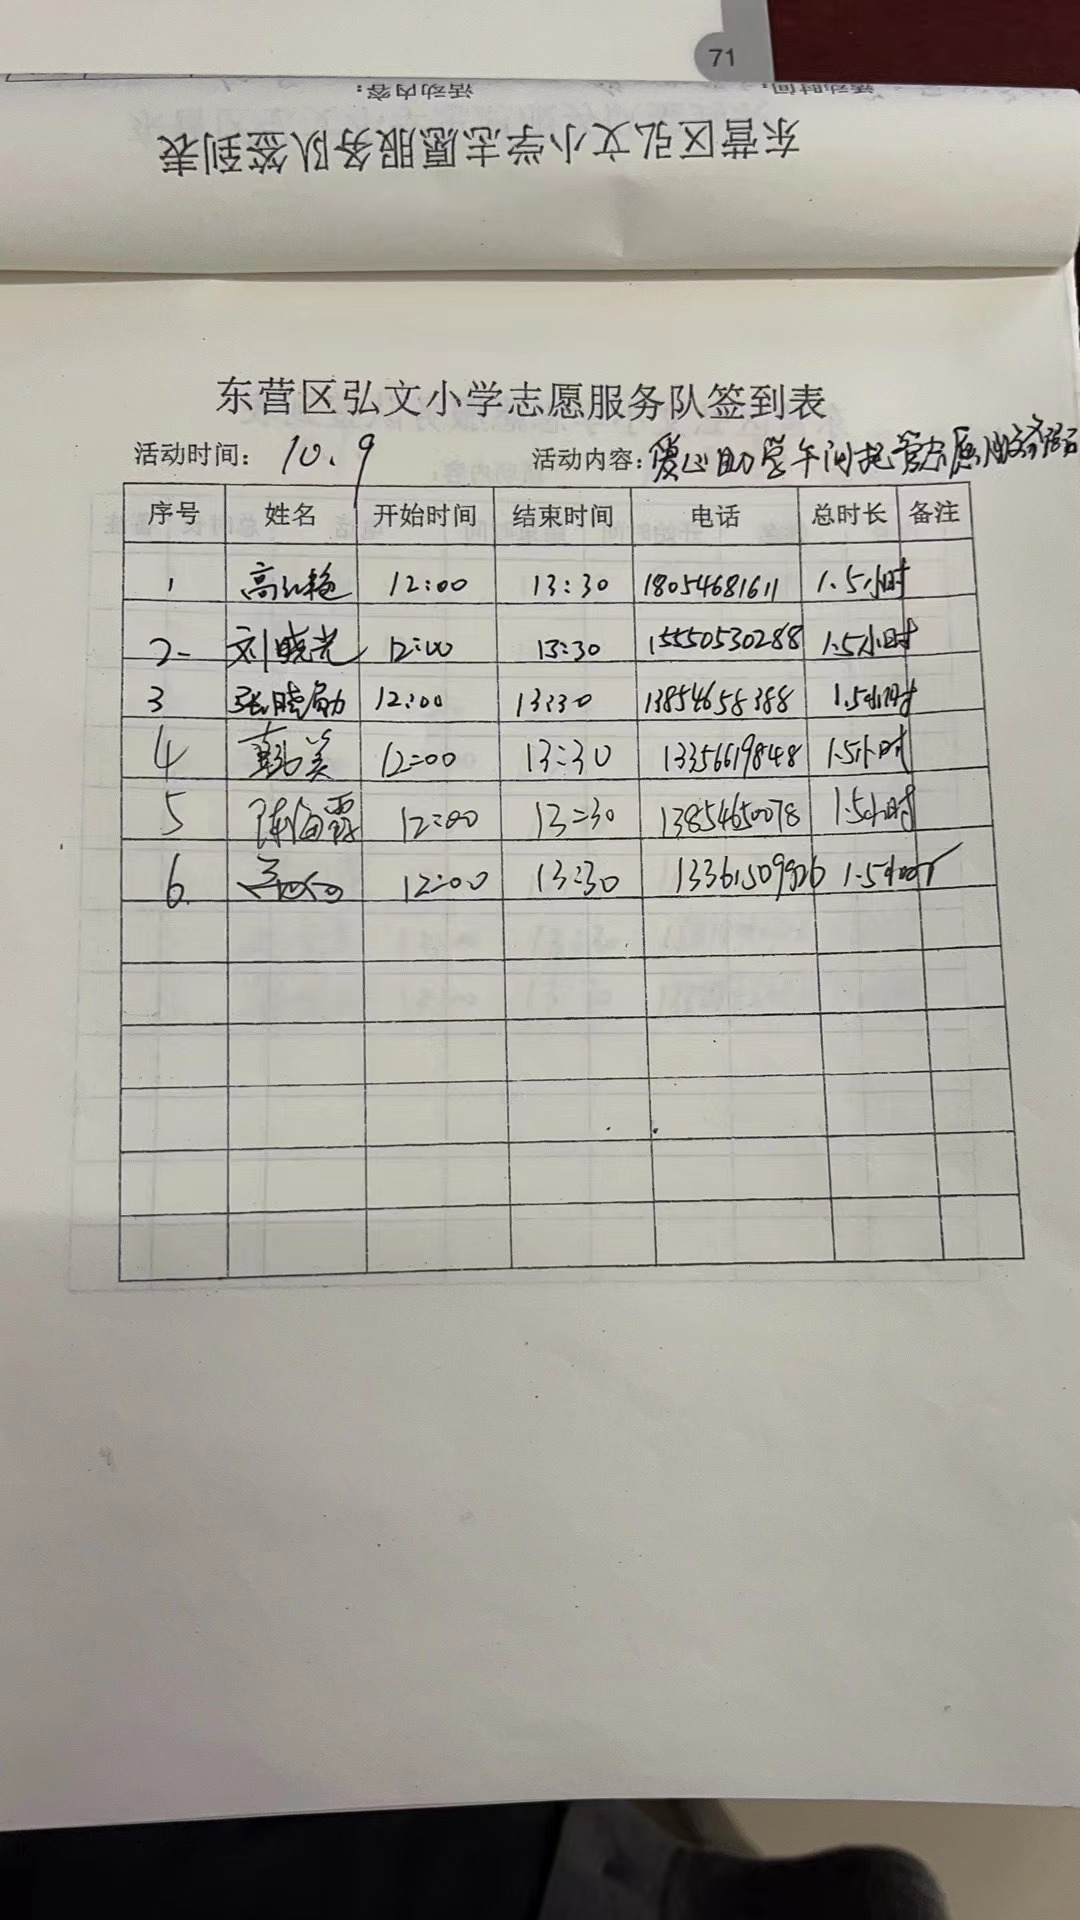 71
活动内容： 活动时间：
东营区弘文小学志愿服务队签到表
东营区弘文小学志愿服务队签到表
活动时间： 10.9 活动内容：爱心助学午间托管志愿服务
序号 姓名 开始时间 结束时间 电话 总时长 备注
1 高红艳 12:00 13:30 18054681611 1.5小时
2 刘晓光 12:00 13:30 15550530288 1.5小时
3 张晓勋 12:00 13:30 13854658388 1.5小时
4 美 12:00 13:30 13356619848 1.5小时
5 陈海霞 12:00 13:30 13854650078 1.5小时
6 12:00 13:30 1.5小时